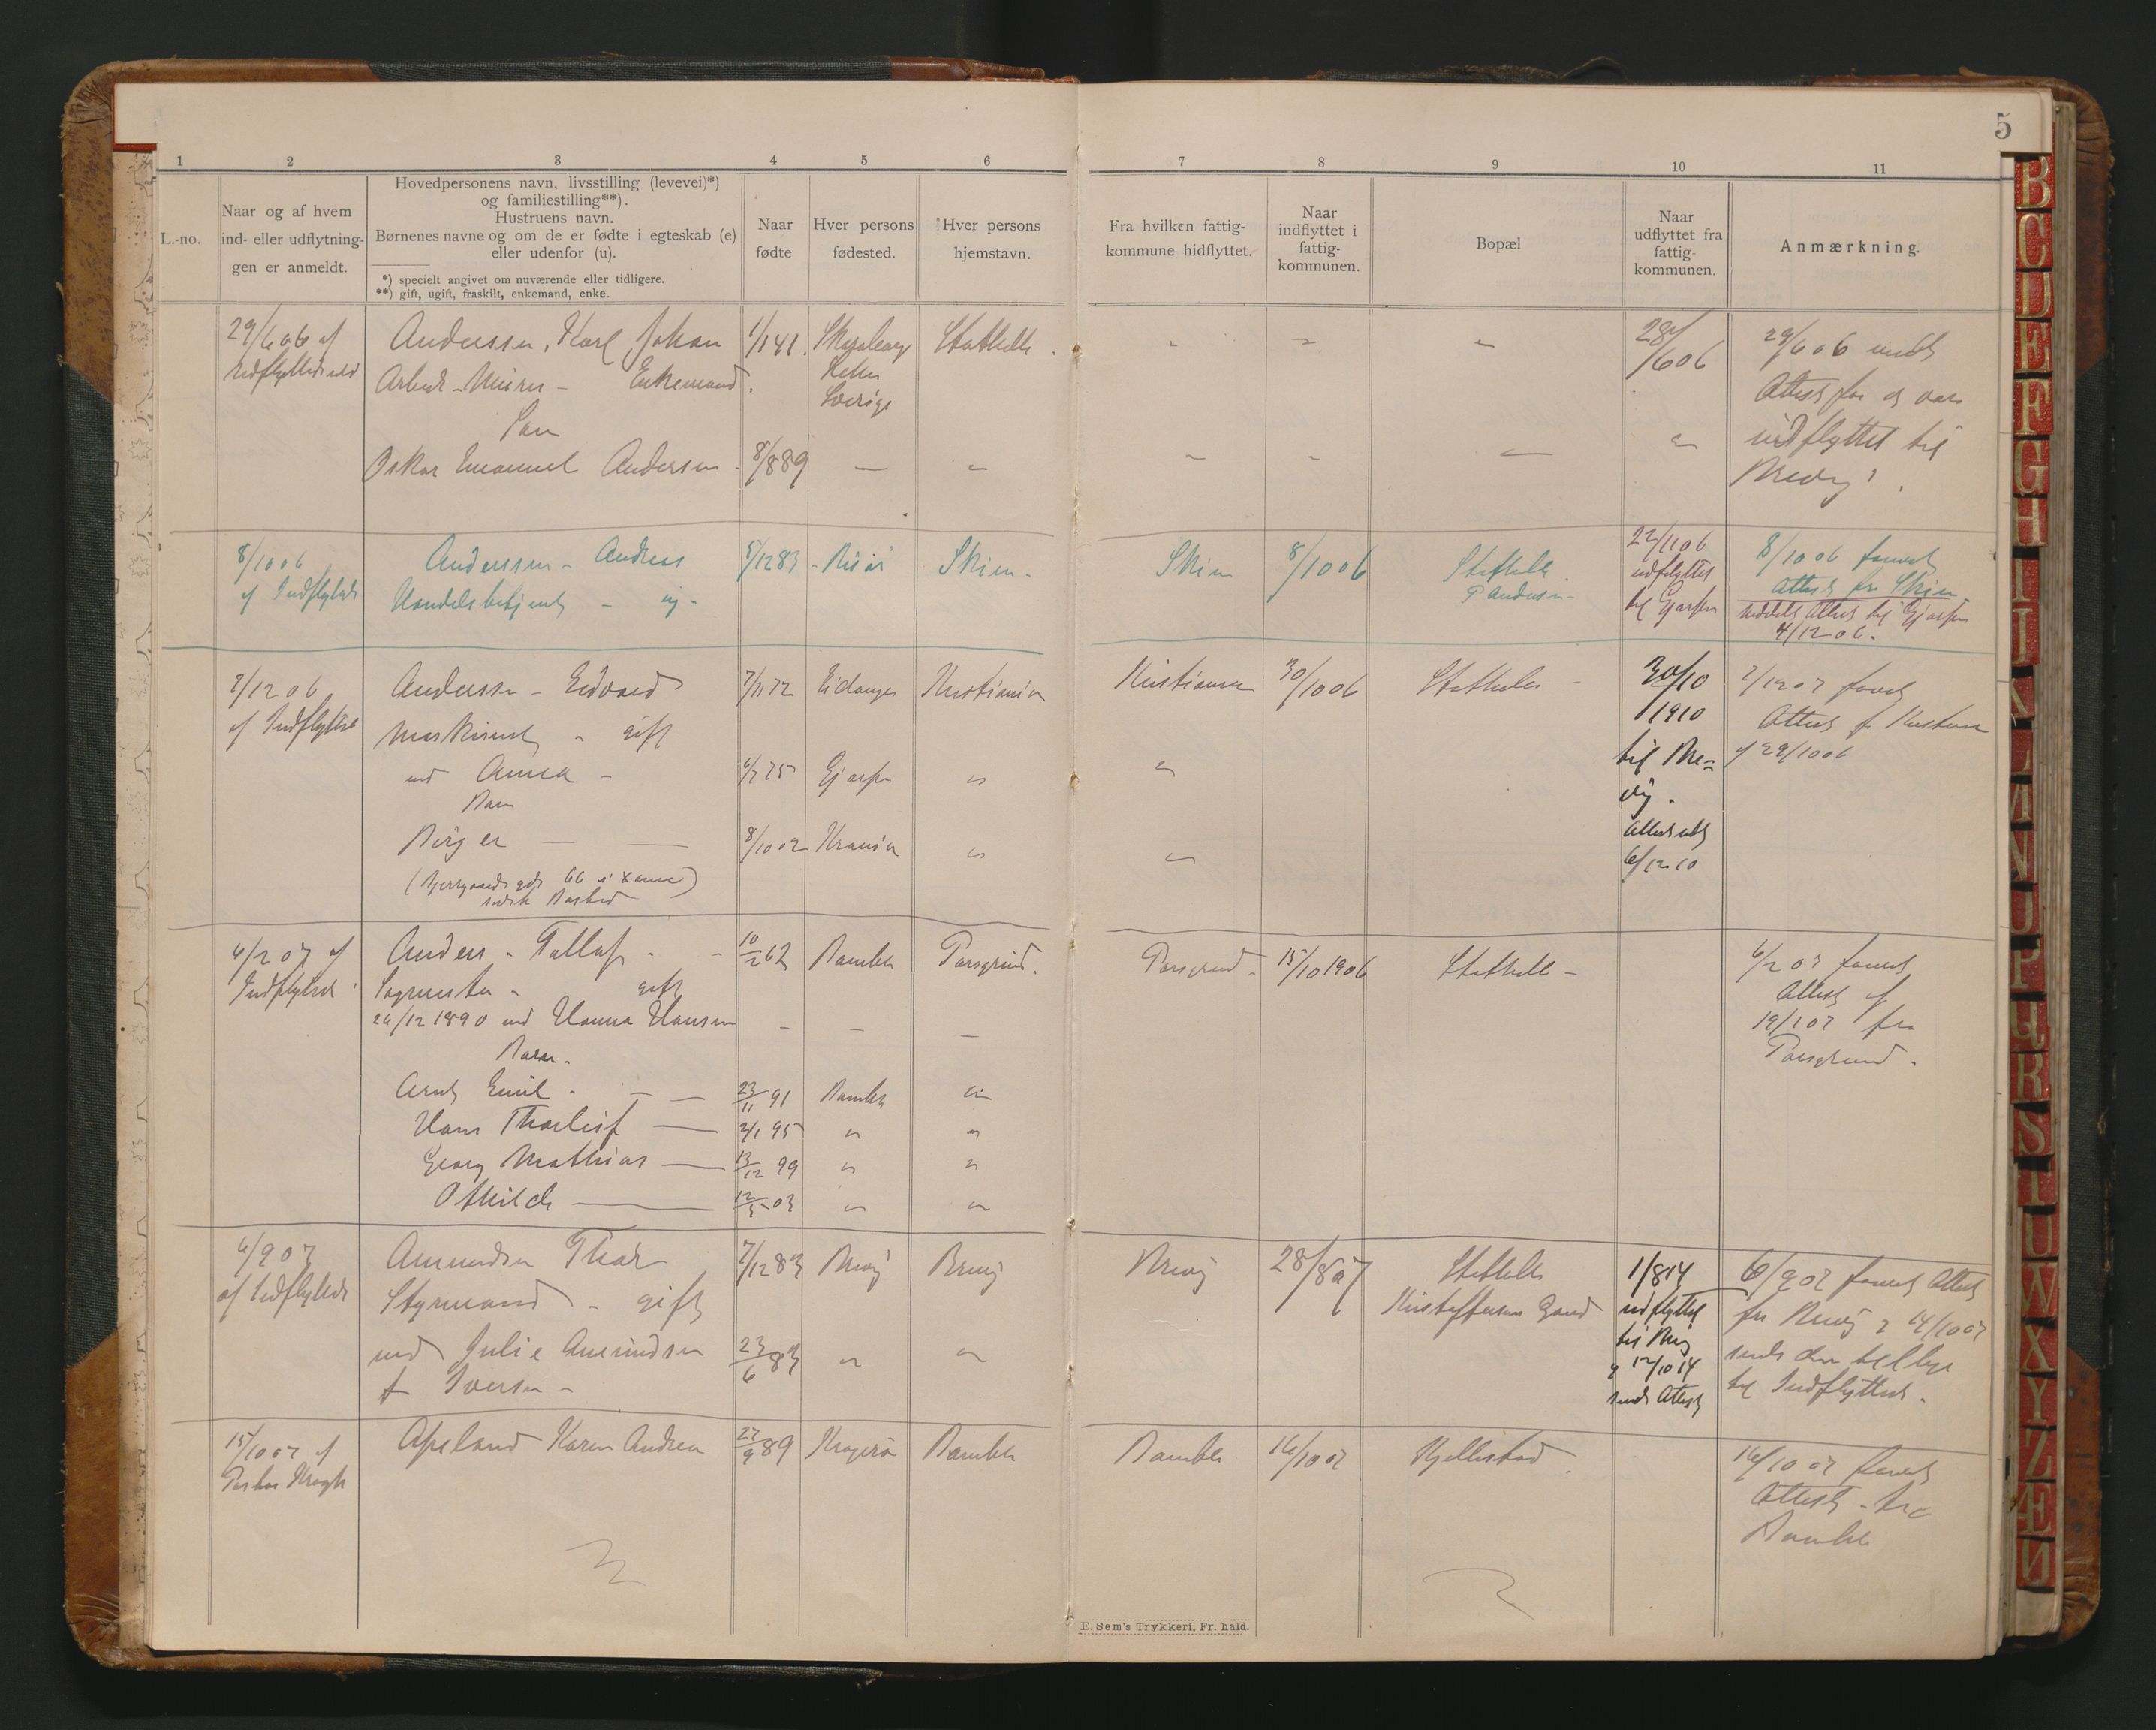 5
1 2 3 4 5 6 7 8 9 10 11
L.-no.
Naar og af hvem
ind- eller udflytnin-
gen er anmeldt.
Hovedpersonens navn, livsstilling (levevei)*)
og familiestilling**).
Hustruens navn.
Børnenes navne og om de er fødte i egteskab (e)
eller udenfor (u).
*) specielt angivet om nuværende eller tidligere.
**) gift, ugift, fraskilt, enkemand, enke.
Naar
fødte
Hver persons
fødested.
Hver persons
hjemstavn.
Fra hvilken fattig-
kommune hidflyttet.
Naar
indflyttet i
fattig-
kommunen.
Bopæl
Naar
udflyttet fra
fattig-
kommunen.
Anmærkning.
29/6 06 af
Udflyttede
Anderssen, Karl Johan
Arbeid - Murer - Enkemand.
Søn
Oskar Emanuel Andersen
1/1 41.
8/8 89
Sverige
Stathelle
28/6 06
29/6 06
Attest for at være
udflyttet til
Brevig
8/10 06
af Indflyttede
Anderssen - Andreas
Handelsbetjent - ug -
5/12 83
Risør
Skien -
Skien
8/10 06
Stathelle
22/11 06
udflyttet
til Gjerpen
8/10 06 forevist
Attest fra Skien
meddelt Attest til Gjerpen
4/12 06.
7/12 06
af Indflyttede
Anderssen - Edvard
Maskinist - gift
med Anna -
Barn
Birger
7/11 72
Eidanger
Kristiania
6/7 75
Gjerpen
8/10 02
Krania
Kristiania
30/10 06
Stathelle
30/10
1910
til Bre=
vig.
Attest
6/12 10
Attest fra Kristiania
af 29/10 06
6/2 07 af
Indflyttede
Anders - Tollef -
Sagmester - gift
26/12 1890 med Hanna Hansen
Barn -
Arnt Emil
Hans Thorleif
Georg Mathias
Othilde
10/2 62
Bamble
Porsgrund.
23/11 91
Bamble
2/1 95
13/12 99
12/5 03
Porsgrund -
15/10 1906
Stathelle -
6/2 07 forevist
Attest af
19/1 07 fra
Porsgrund.
6/9 07
af Indflyttede
Amundsen Thor
Styrmand - gift
med Julie Amundsen
f Iversen -
7/12 83
Brevig
Brevig
23/6 83
Brevig
28/8 07
Stathelle
Kristoffersens Gaard
1/8 14
udflyttet
til Brevig
12/10 14
sendt Attest
6/9 07 forevist Attest
fra Brevig
14/10 07
til Indflyttede.
15/10 07 af
Pastor Krogh
Apeland Karen Andrea
27/9 89
Kragerø
Bamble
Bamble
16/10 07
Kjellestad
16/10 07 forevist
Attest fra
Bamble
E. Sem's Trykkeri, Fr. hald.
B C D E F G H I J K L M N O P Q R S T U W X Y Z Æ Ø